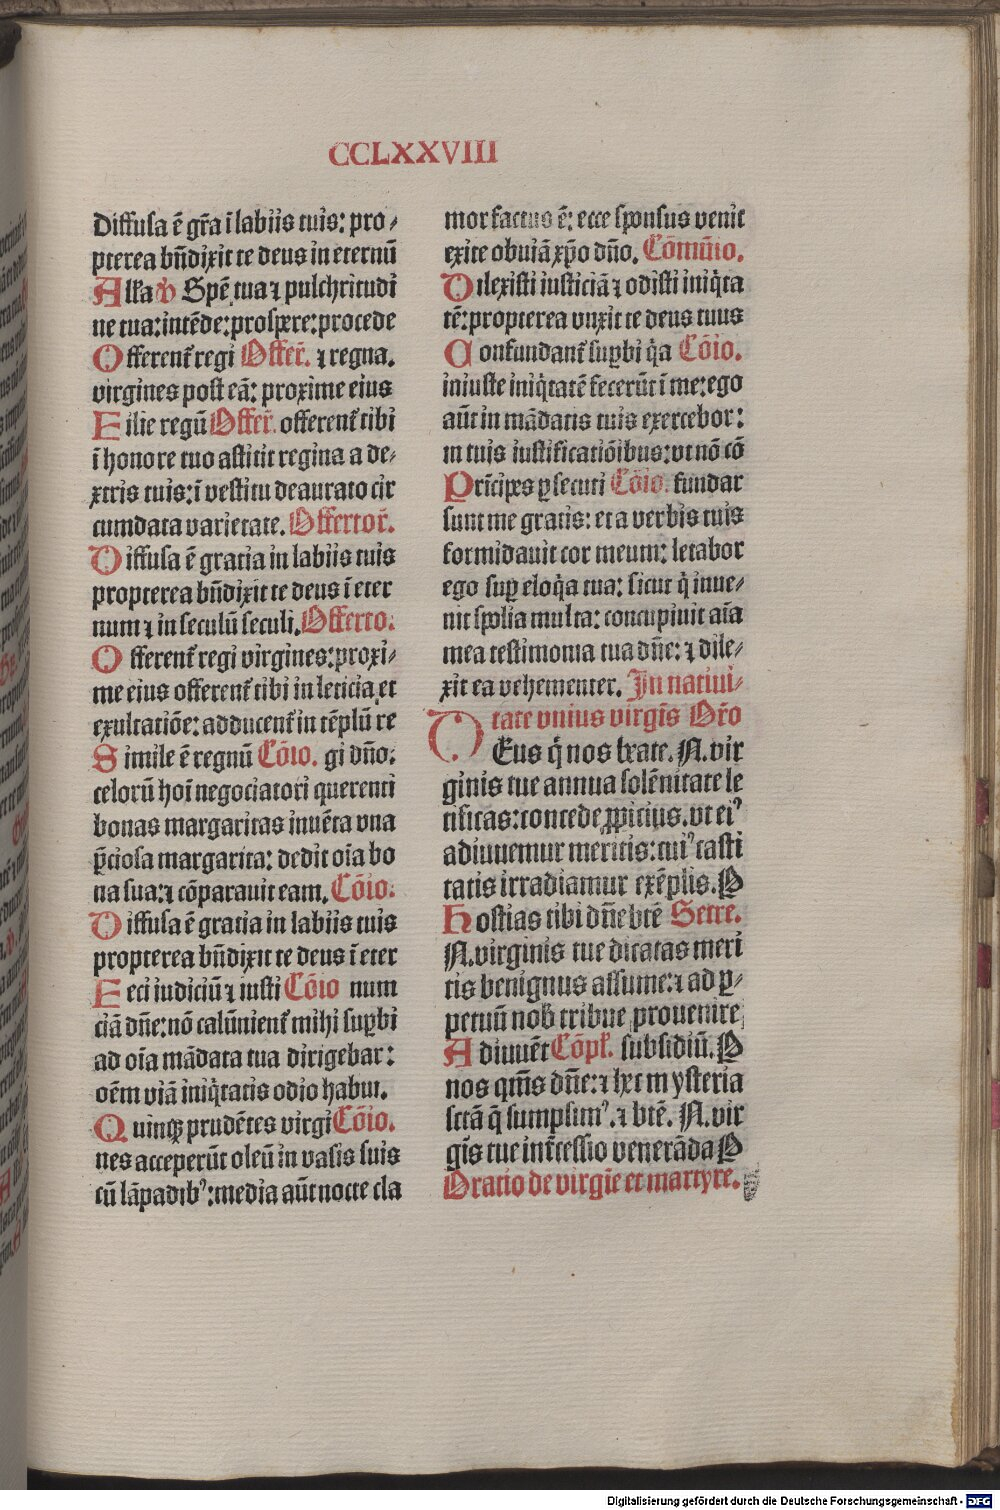 CCLXXVIII
Diffusa ē gr̄a ī labiis tuis: pro-
pterea bn̄dixit te deus in eternū
Alla ℣ Spē tua ⁊ pulchritudi
ne tua: intēde: prospere: procede
Offerent᷑ regi Offer̄. ⁊ regna.
virgines post eā: proxime eius
Filie regū Offer̄. offerent᷑ tibi
ī honore tuo astitit regina a de-
xtris tuis: ī vestitu deaurato cir
cumdata varietate. Offertor̄.
Diffusa ē gratia in labiis tuis
propterea bn̄dixit te deus ī eter
num ⁊ in seculū seculi. Offerto:
Offerent᷑ regi virgines: proxi-
me eius offerent᷑ tibi in leticia et
exultatiōe: adducent᷑ in tēplū re
Simile ē regnū Cōio. gi dn̄o:
celorū hoī negociatori querenti
bonas margaritas inuēta vna
p̄ciosa margarita: dedit oīa bo
na sua: ⁊ cōparauit eam. Cōio:
Diffusa ē gratia in labiis tuis
propterea bn̄dixit te deus ī eter
Feci iudiciū ⁊ iusti Cōio num
ciā dn̄e: nō calūnient᷑ mihi suꝑbi
ad oīa mādata tua dirigebar:
oēm viā iniq̄tatis odio habui.
Quinqꝫ prudētes virgi Cōio.
nes acceperūt oleū in vasis suis
cū lāpadibꝰ: media aūt nocte cla
mor factus ē: ecce sponsus venit
exite obuiā xp̄o dn̄o. Cōmūio.
Dilexisti iusticiā ⁊ odisti iniq̄ta
tē: propterea vnxit te deus tuus
Confundant᷑ suꝑbi q̄a Cōio.
iniuste iniq̄tatē fecerūt ī me: ego
aūt in mādatis tuis exercebor:
in tuis iustificatiōibus: vt nō cō
Prīcipes ꝑsecuti Cōio. fundar
sunt me gratis: et a verbis tuis
formidauit cor meum: letabor
ego suꝑ eloq̄a tua: sicut q̄ inue-
nit spolia multa: concupiuit aīa
mea testimonia tua dn̄e: ⁊ dile-
xit ea vehementer. In natiui-
tate vnius virgīs Or̄o
DEus q̄ nos beate. N. vir
ginis tue annua solēnitate le
tificas: concede ꝓpitius. vt eiꝰ
adiuuemur meritis: cuiꝰ casti
tatis irradiamur exēplis. P
Hostias tibi dn̄e btē Secre.
N. virginis tue dicatas meri
tis benignus assume: ⁊ ad ꝑ-
petuū nob̄ tribue prouenire
Adiuuēt Cōpl̄. subsidiū. P
nos qm̄s dn̄e: ⁊ hec mysteria
sctā q̄ sumpsimꝰ. ⁊ btē. N. vir
gīs tue int᷑cessio venerāda P
Oratio de virgīe et martyre.
Digitalisierung gefördert durch die Deutsche Forschungsgemeinschaft - DFG